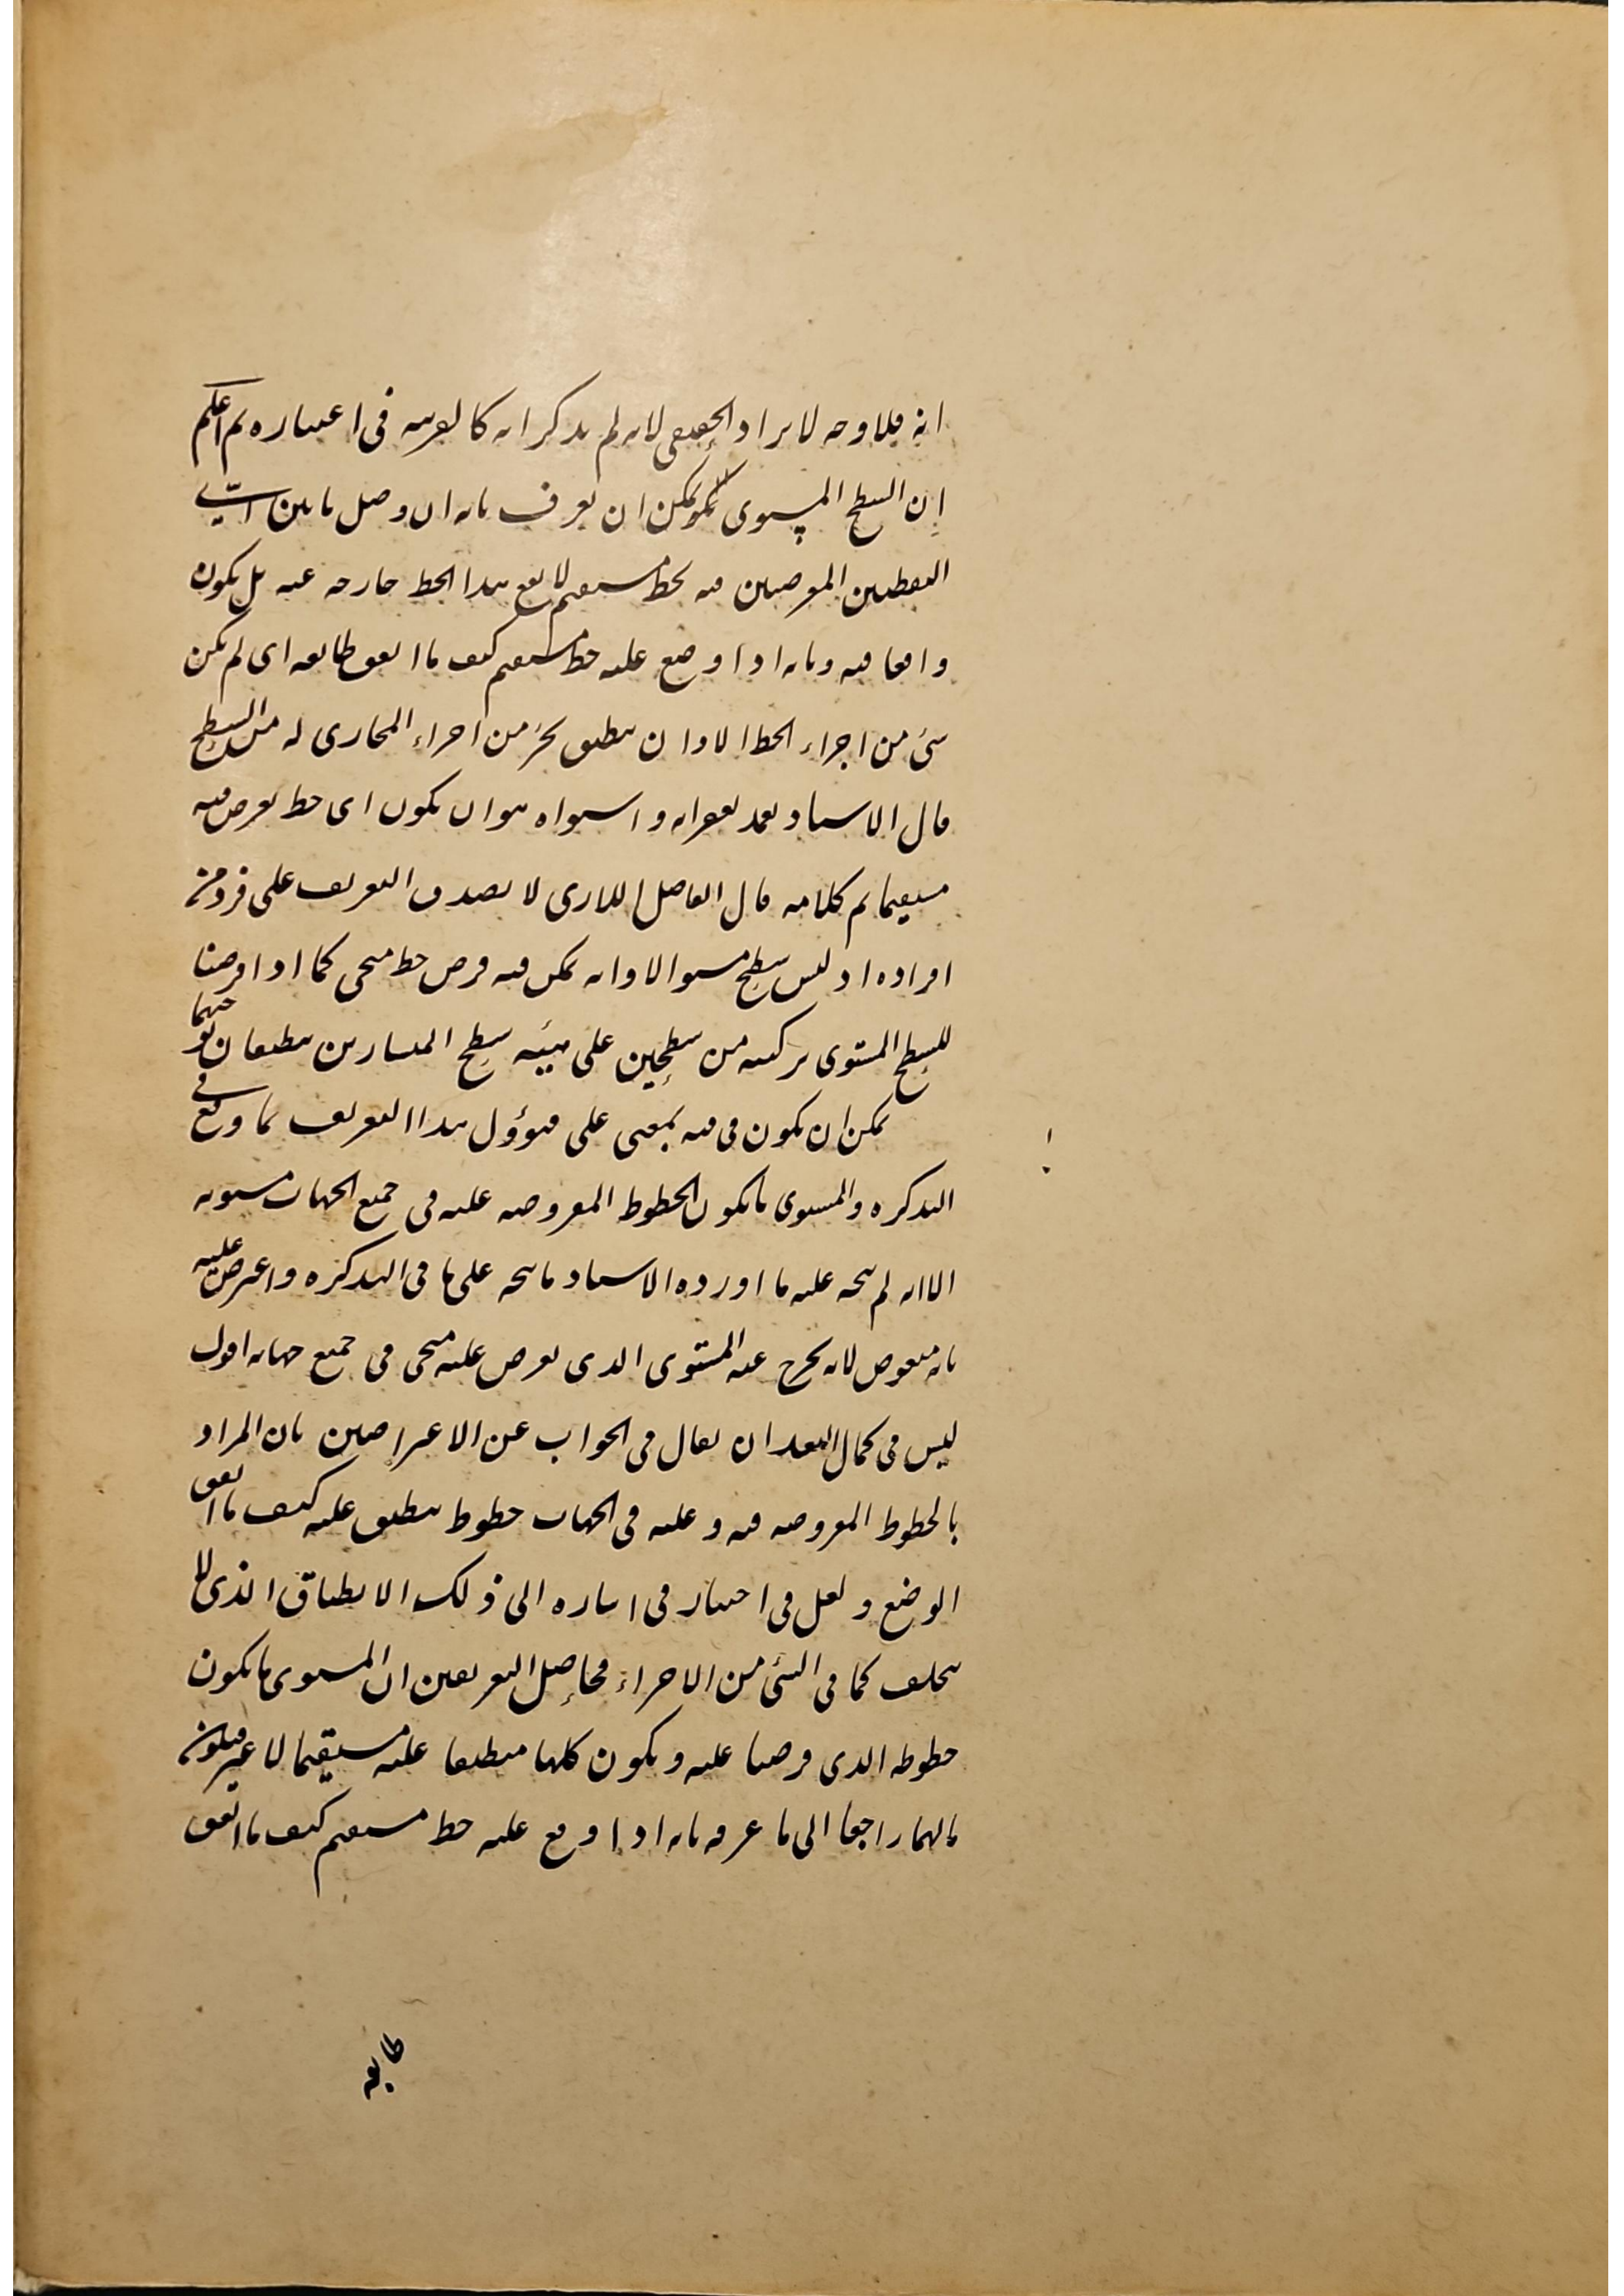 انه فلا وجه لايراد الحقيقي لانه لم يذكر انه كالقرينه في اعتباره ثم اعلم
ان السطح المستوى يمكن ان يعرف بانه ان وصل ما بين اى
النقطتين المفروضتين فيه بخط مستقيم لا يقع هذا الخط خارجه عنه بل يكون
واقعا فيه وبانه اذا وضع عليه خط مستقيم كيف ما اتفق طابقه اى لم يكن
شئ من اجراء الخط الا وان ينطبق بجزء من اجزاء المحاذى له من السطح
قال الاستاد تغمد بغفرانه واستواه هو ان يكون اى خط يفرض فيه
مستقيما تم كلامه قال الفاضل اللارى لا يصدق التعريف على فرد من
افراده اذ ليس سطح مستو الا وانه يمكن فيه فرض خط منحنى كما اذا فرضنا
للسطح المستوى تركبه من سطحين على هيئه سطح المنشارين ينطبقان
يمكن ان يكون في فيه بمعنى على فيؤول هذا التعريف بما وقع في
التذكره والمستوى ما يكون الخطوط المفروضه عليه في جميع الجهات مستويه
الا انه لم يتجه عليه ما اورده الاستاد ما يتجه على ما في التذكره واعترض عليه
بانه منقوض لانه يخرج عنه المستوى الذى يعرض عليه منحنى في جميع جهاته اقول
ليس في كمال البعد ان يقال في الجواب عن الاعتراضين بان المراد
بالخطوط المفروضه فيه وعليه في الجهات خطوط ينطبق عليه كيف ما اتفق
الوضع ولعل في اختيار في اشاره الى ذلك الانطباق الذى لا
يتخلف كما في الشئ من الاجزاء فحاصل التعريفين ان المستوى ما يكون
خطوطه الذى فرضنا عليه ويكون كلها منطبقا عليه مستقيما لا غير فيكون
مالهما راجعا الى ما عرفه بانه اذا وقع عليه خط مستقيم كيف ما اتفق
طابقه